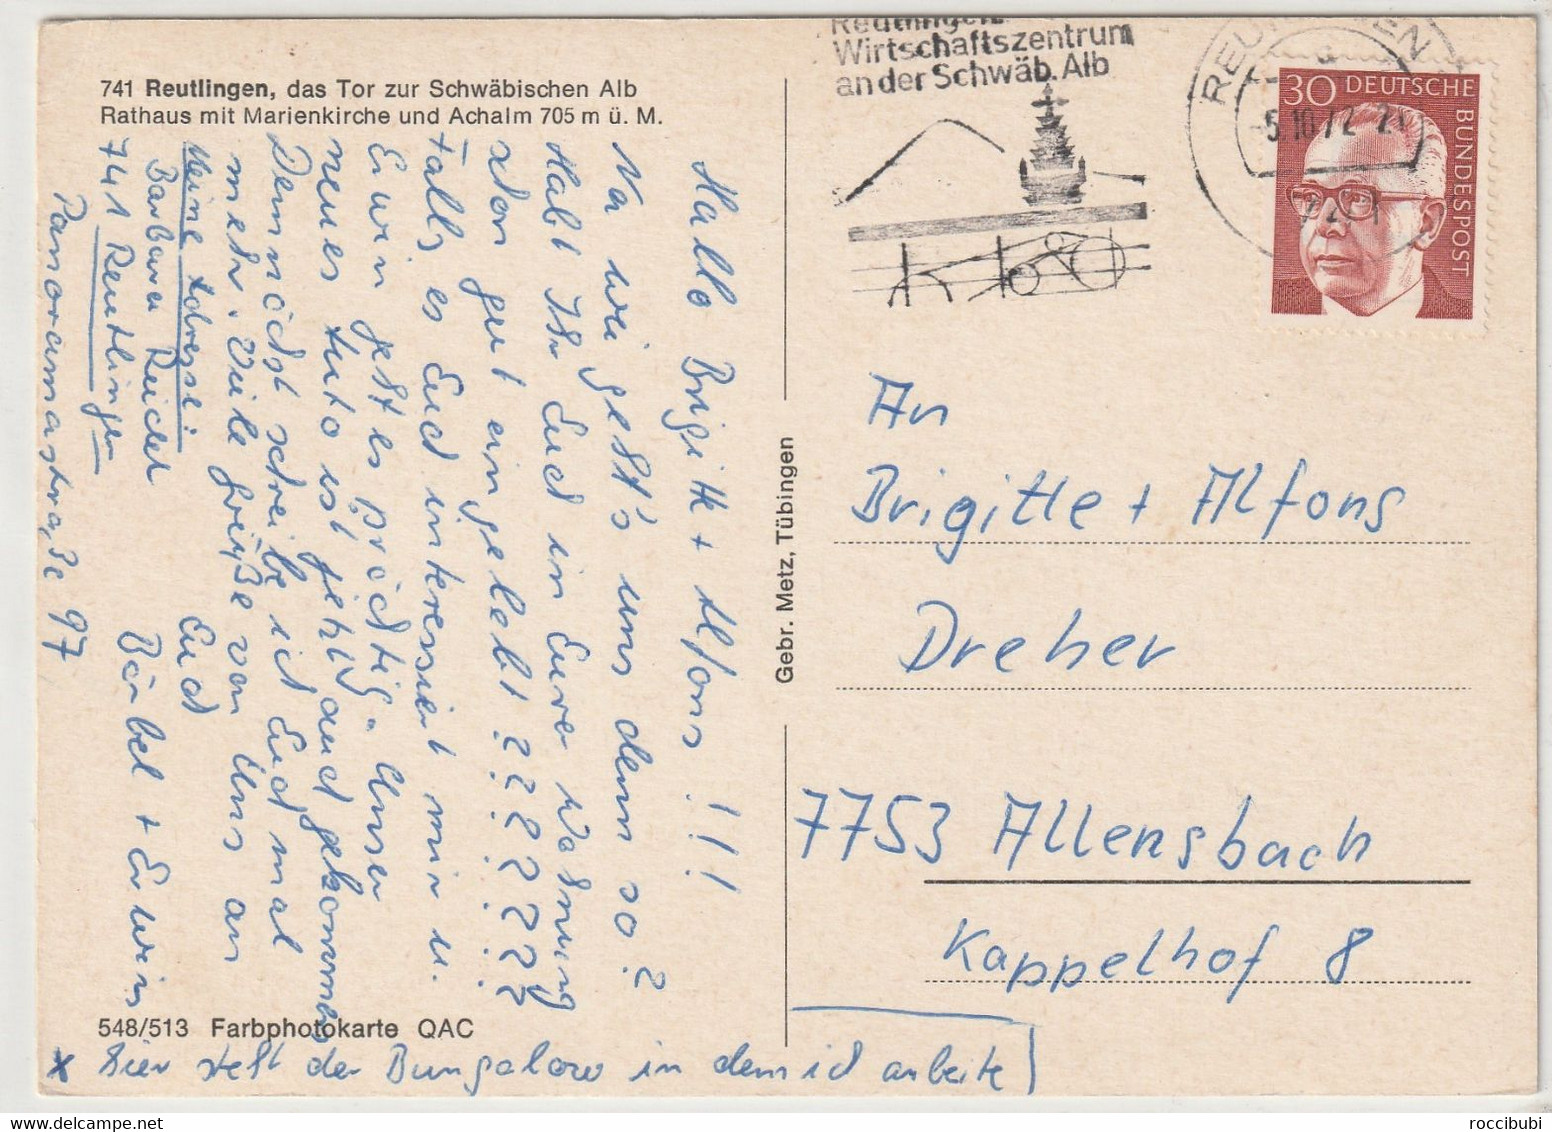 741 Reutlingen, das Tor zur Schwäbischen Alb
Rathaus mit Marienkirche und Achalm 705 m ü. M.
Hallo Brigitte + Alfons !!!
Na wie geht's uns denn so?
Habt Ihr Euch in Eurer Wohnung
schon gut eingelebt ????????
Falls es Euch interessiert mir u.
Erwin geht es prächtig. Unser
neues Auto ist jetzt auch gekommen
Demnächst schreibe ich Euch mal
mehr. Viele Grüße von Uns an
Euch
Bärbel + Erwin
Meine Adresse:
Barbara Reichel
741 Reutlingen
Panoramastraße 97
548/513 Farbphotokarte QAC
x hier steht der Bungalow in dem ich arbeite
Gebr. Metz, Tübingen
Reutlingen
Wirtschaftszentrum
an der Schwäb. Alb
REUTLINGEN
-5.10.72-21
30 DEUTSCHE
BUNDESPOST
An
Brigitte + Alfons
Dreher
7753 Allensbach
Kappelhof 8
roccibubi